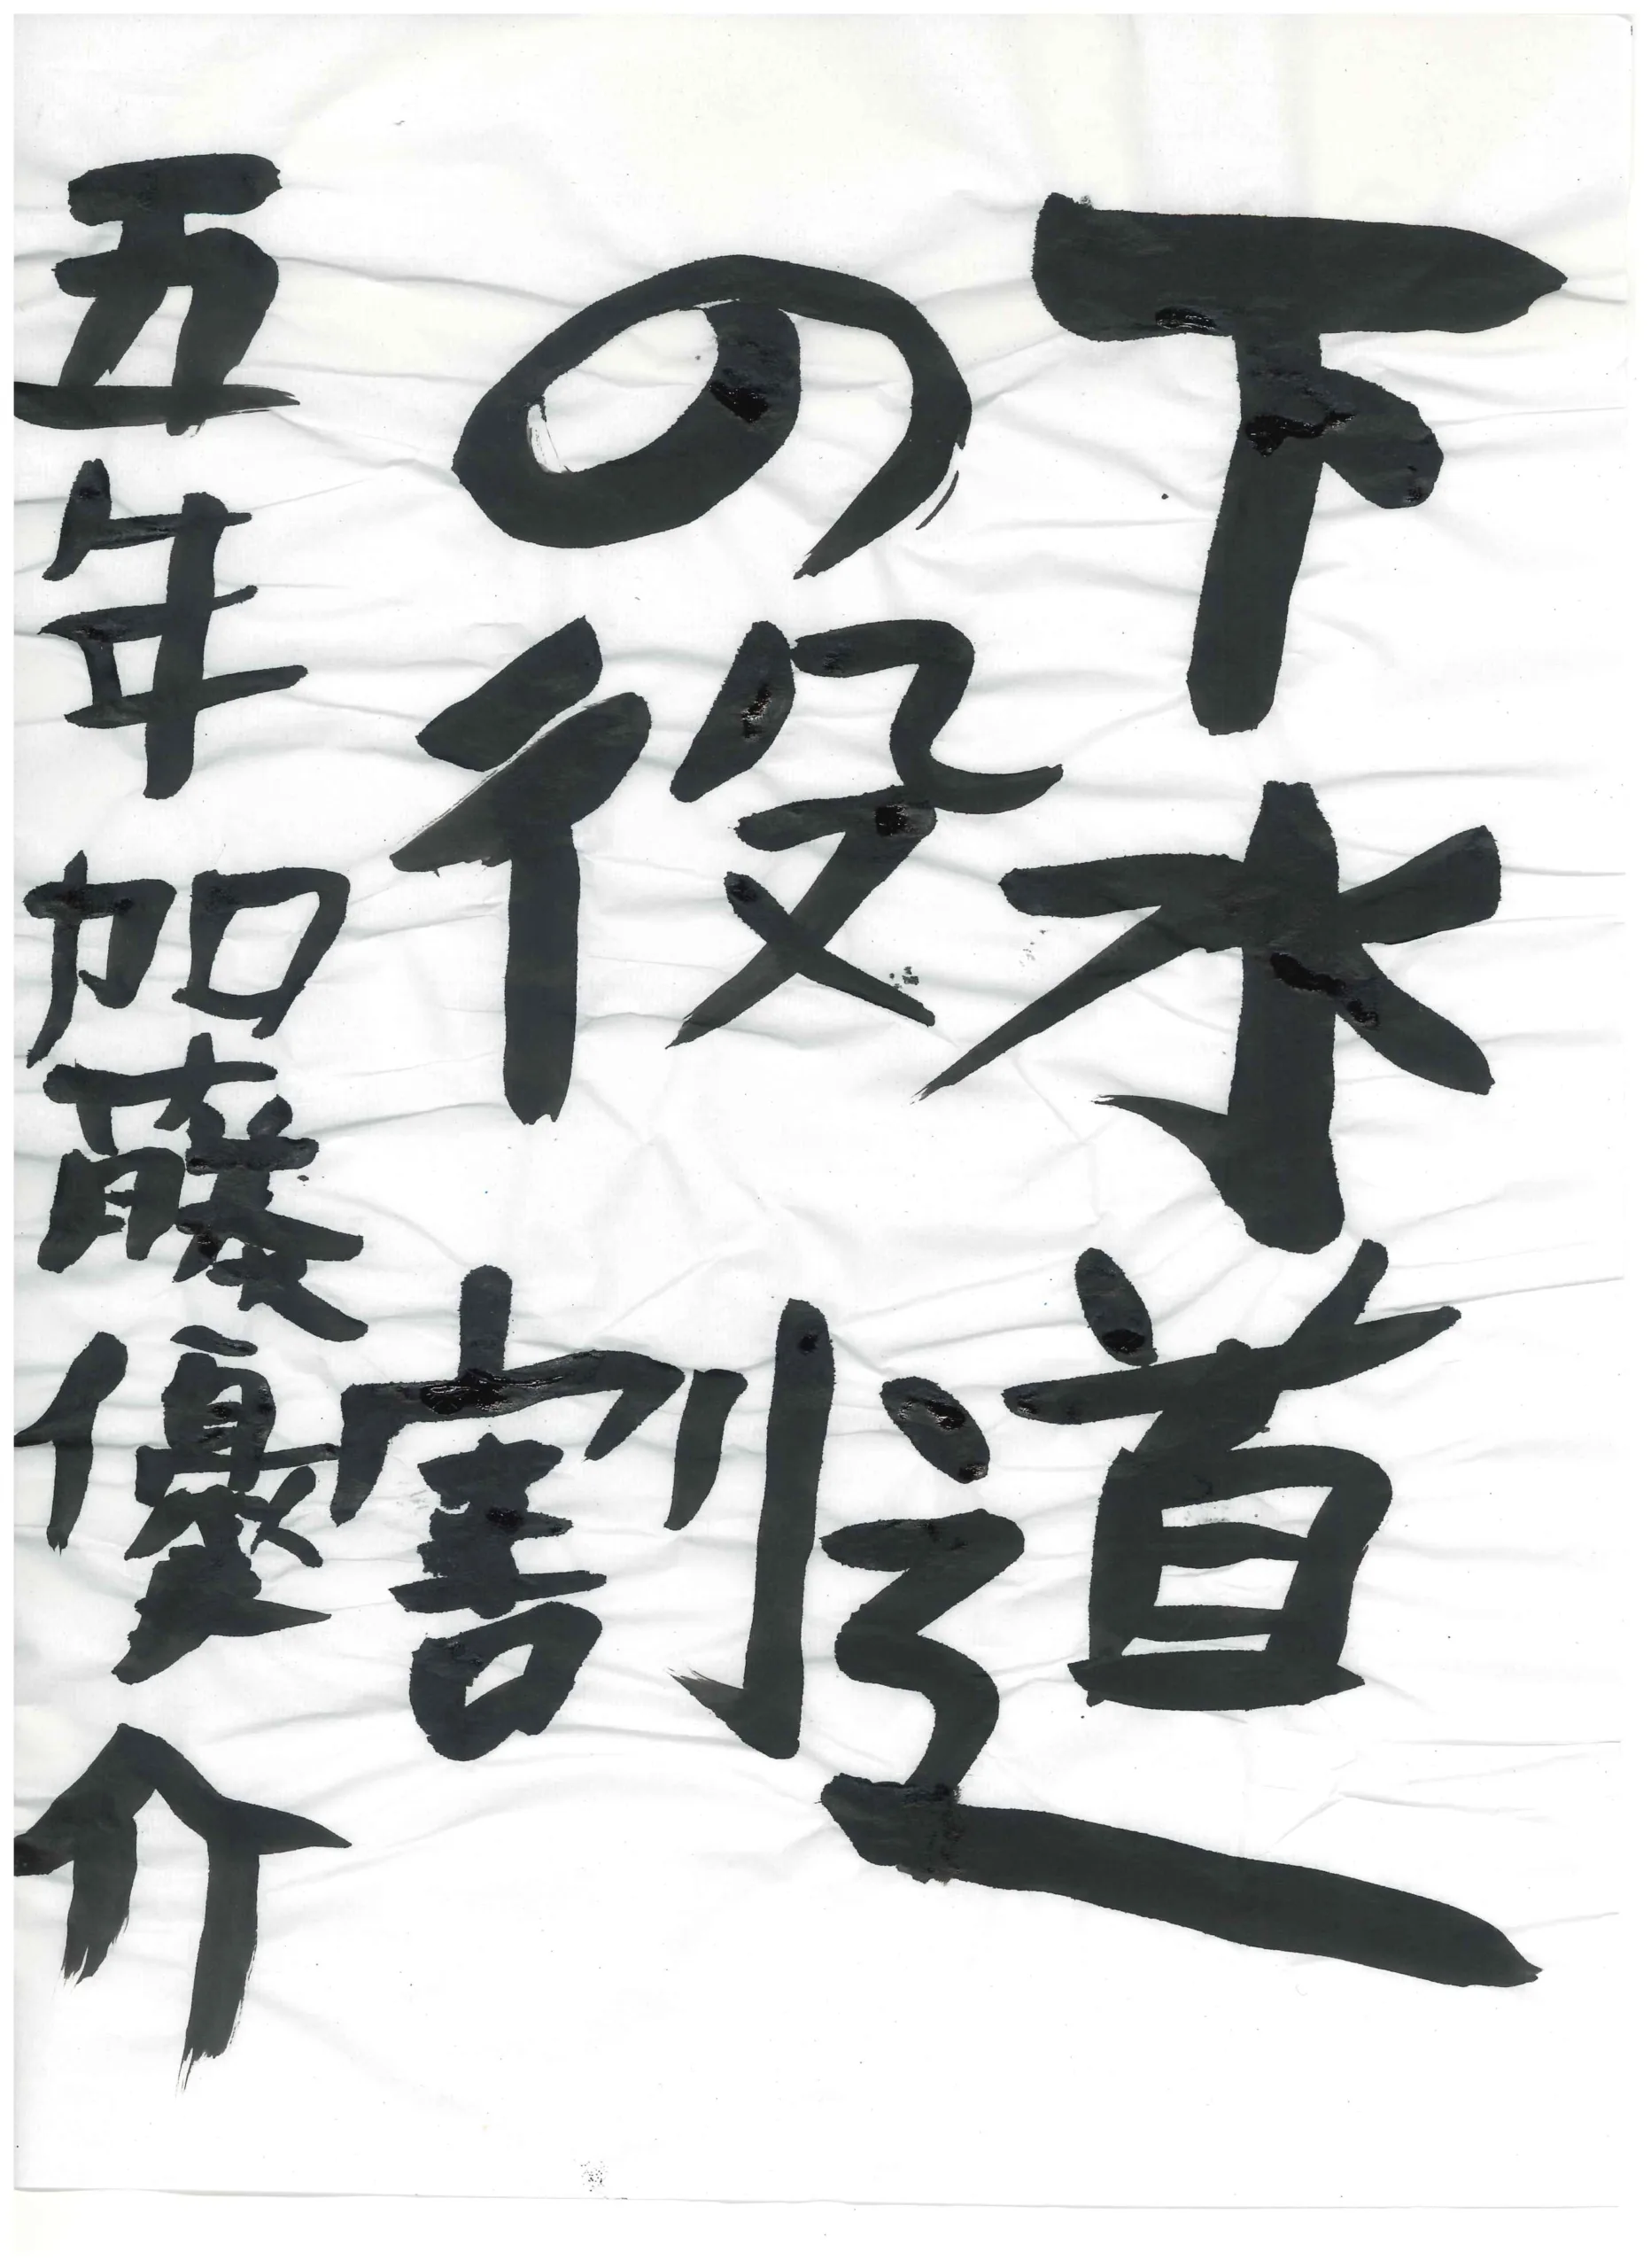 下水道
の役割
五年 加藤優介